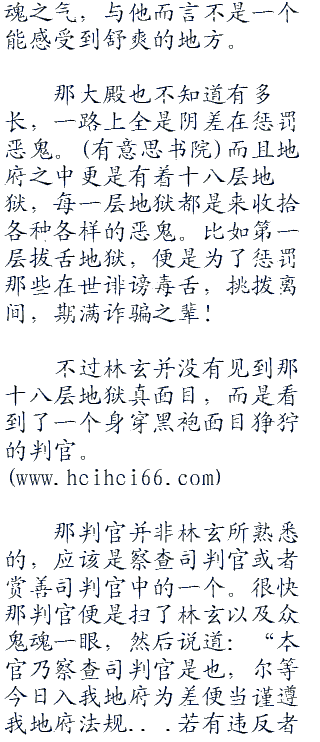 魂之气，与他而言不是一个
能感受到舒爽的地方。
那大殿也不知道有多
长，一路上全是阴差在惩罚
恶鬼。(有意思书院)而且地
府之中更是有着十八层地
狱，每一层地狱都是来收拾
各种各样的恶鬼。比如第一
层拔舌地狱，便是为了惩罚
那些在世诽谤毒舌，挑拨离
间，期满诈骗之辈！
不过林玄并没有见到那
十八层地狱真面目，而是看
到了一个身穿黑袍面目狰狞
的判官。
(www.hcihci66.com)
那判官并非林玄所熟悉
的，应该是察查司判官或者
赏善司判官中的一个。很快
那判官便是扫了林玄以及众
鬼魂一眼，然后说道：“本
官乃察查司判官是也，尔等
今日入我地府为差便当谨遵
我地府法规...若有违反者